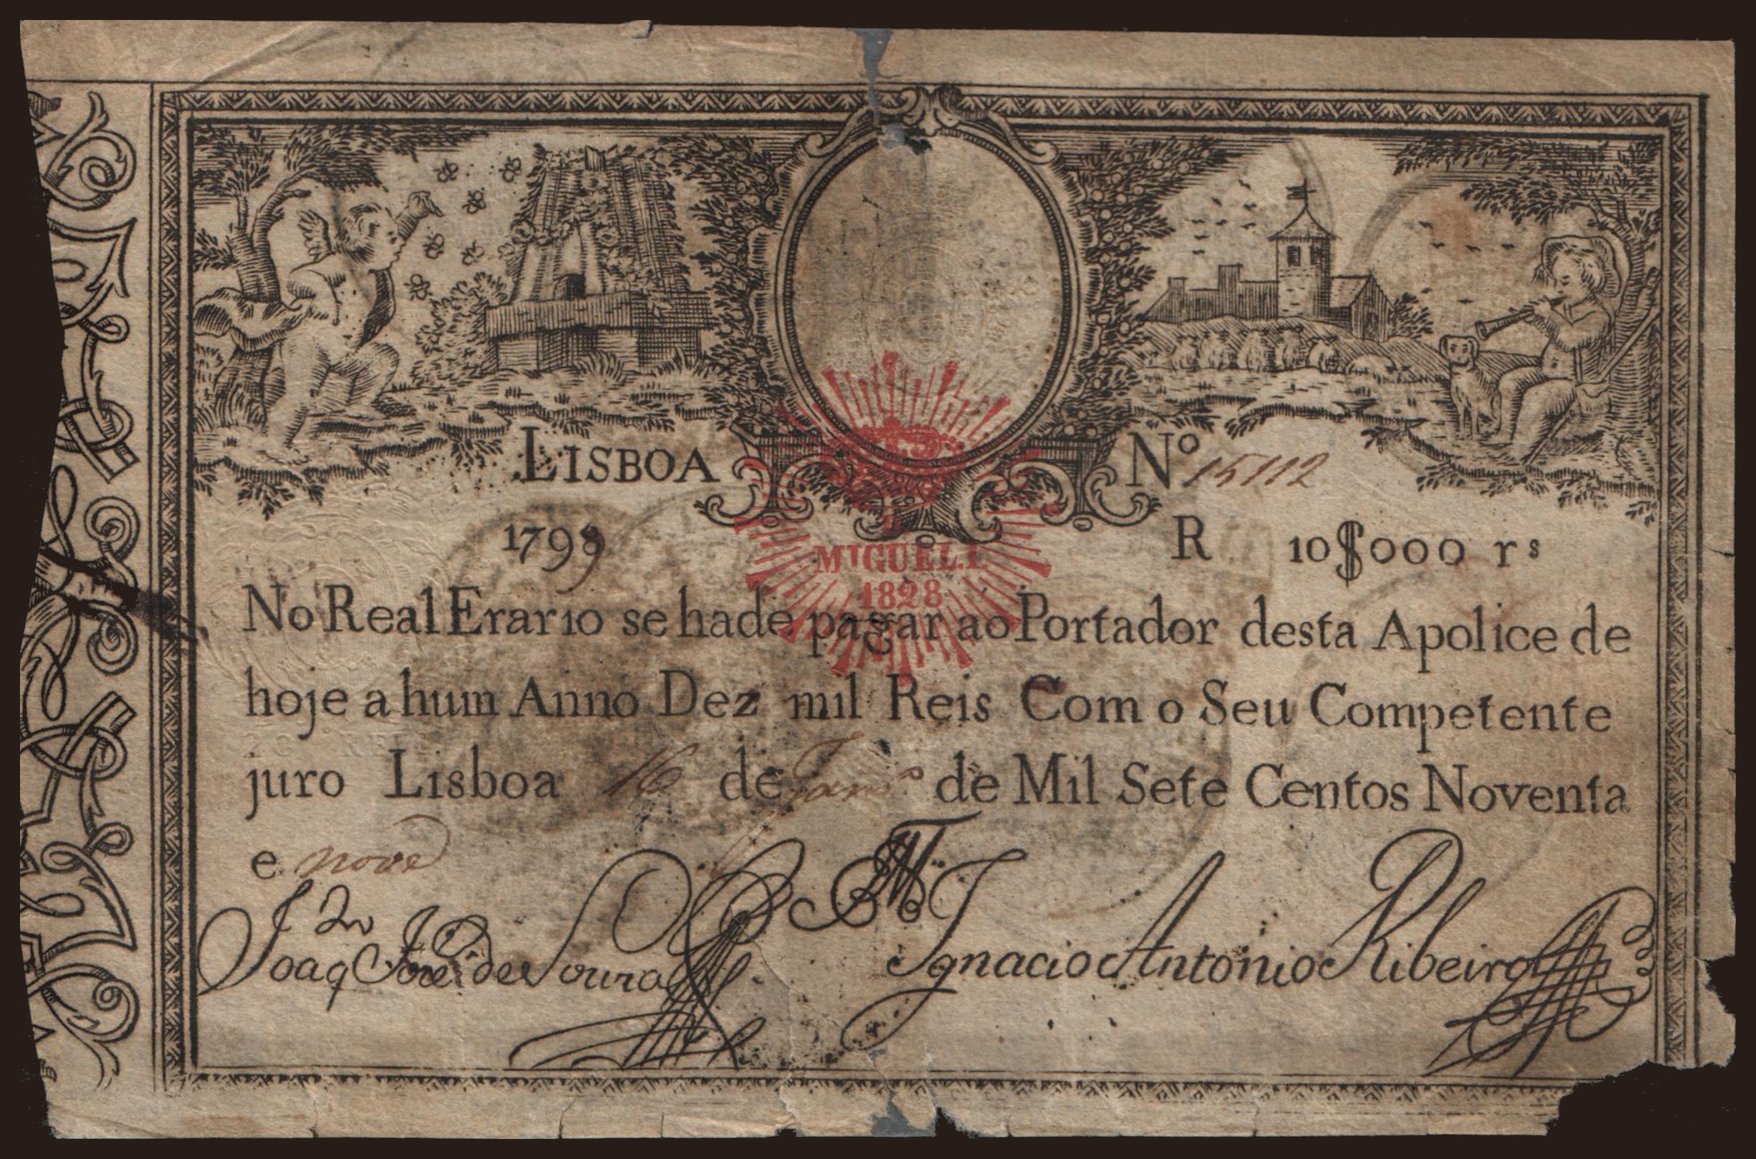 LISBOA Nº 15112
1799 R 10$000 rs
MIGUEL.I.
1828
No Real Erario se hade pagar ao Portador desta Apolice de
hoje a hum Anno Dez mil Reis Com o Seu Competente
juro Lisboa 16 de de Mil Sete Centos Noventa
e nove
Joaq José de Souza Ignacio Antonio Ribeiro